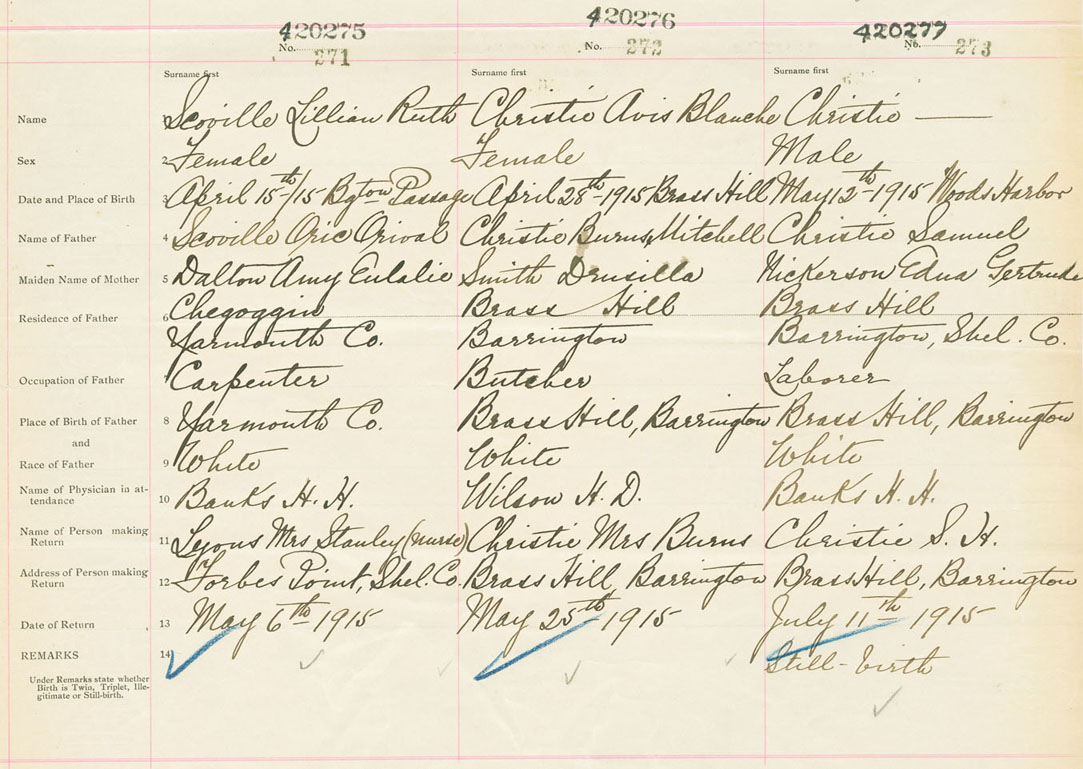 420275 420276 420277
No. 271 No. 272 No. 273
Surname first Surname first Surname first
Name 1 Scoville Lillian Ruth Christie Avis Blanche Christie —
Sex 2 Female Female Male
Date and Place of Birth 3 April 15th/15 Bgton Passage April 28th 1915 Brass Hill May 12th 1915 Woods Harbor
Name of Father 4 Scoville Oric Orival Christie Burns Mitchell Christie Samuel
Maiden Name of Mother 5 Dalton Amy Eulalie Smith Drusilla Nickerson Edna Gertrude
Residence of Father 6 Chegoggin Brass Hill Brass Hill
Yarmouth Co. Barrington Barrington, Shel. Co.
Occupation of Father 7 Carpenter Butcher Laborer
Place of Birth of Father 8 Yarmouth Co. Brass Hill, Barrington Brass Hill, Barrington
and
Race of Father 9 White White White
Name of Physician in at-
tendance 10 Banks H. H. Wilson H. D. Banks H. H.
Name of Person making
Return 11 Lyons Mrs Stanley (nurse) Christie Mrs Burns Christie S. H.
Address of Person making
Return 12 Forbes Point, Shel. Co. Brass Hill, Barrington Brass Hill, Barrington
Date of Return 13 May 6th 1915 May 25th 1915 July 11th 1915
REMARKS 14 Still-birth
Under Remarks state whether
Birth is Twin, Triplet, Ille-
gitimate or Still-birth.